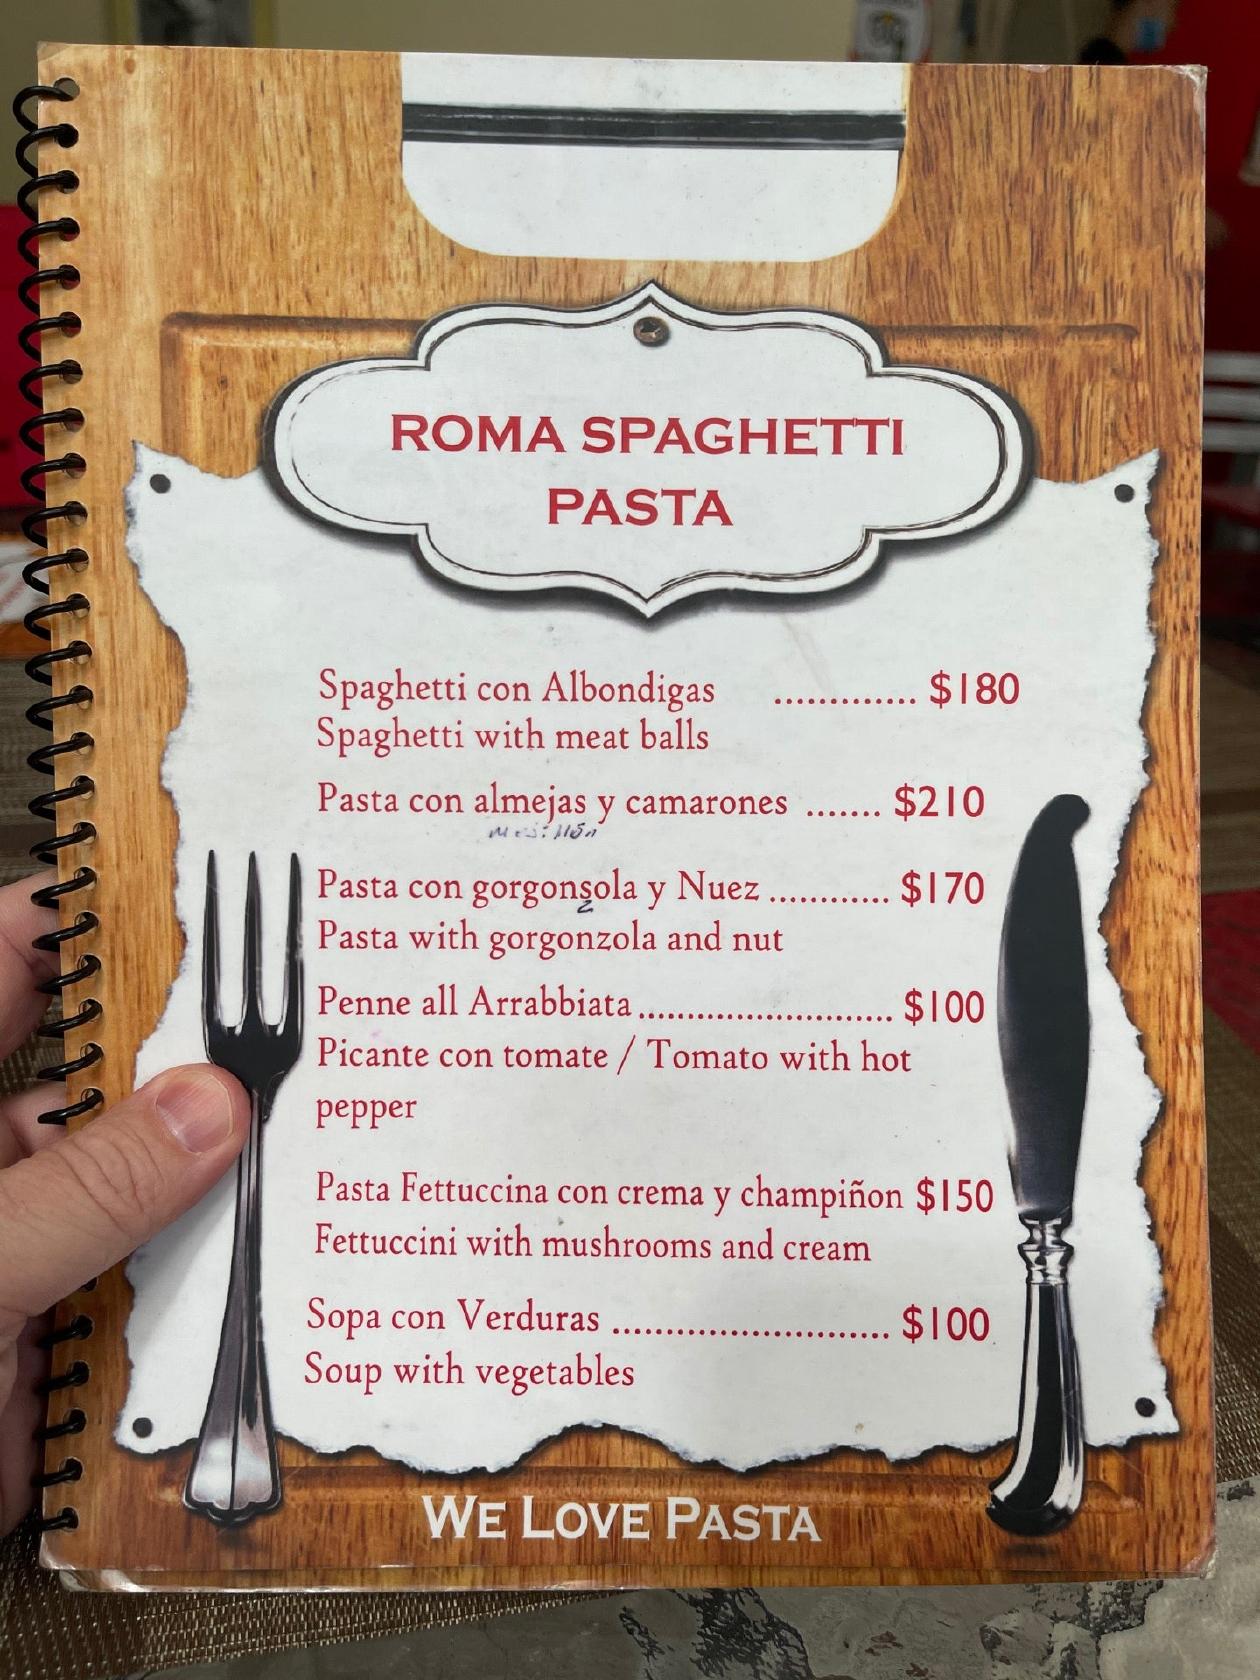 ROMA SPAGHETTI
PASTA
Spaghetti con Albondigas ............. $180
Spaghetti with meat balls
Pasta con almejas y camarones ....... $210
Pasta con gorgonsola y Nuez ............ $170
z
Pasta with gorgonzola and nut
Penne all Arrabbiata .......................... $100
Picante con tomate / Tomato with hot
pepper
Pasta Fettuccina con crema y champiñon $150
Fettuccini with mushrooms and cream
Sopa con Verduras .......................... $100
Soup with vegetables
WE LOVE PASTA